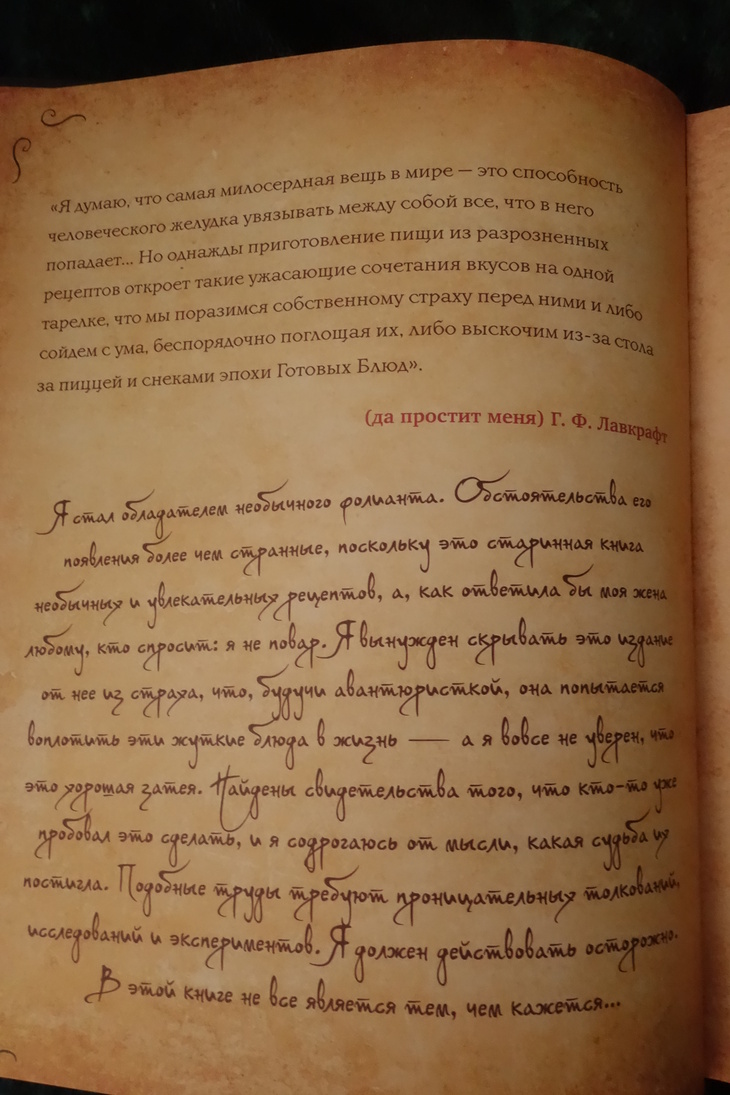 «Я думаю, что самая милосердная вещь в мире — это способность
человеческого желудка увязывать между собой все, что в него
попадает... Но однажды приготовление пищи из разрозненных
рецептов откроет такие ужасающие сочетания вкусов на одной
тарелке, что мы поразимся собственному страху перед ними и либо
сойдем с ума, беспорядочно поглощая их, либо выскочим из-за стола
за пиццей и снеками эпохи Готовых Блюд».
(да простит меня) Г. Ф. Лавкрафт
Я стал обладателем необычного фолианта. Обстоятельства его
появления более чем странные, поскольку это старинная книга
необычных и увлекательных рецептов, а, как ответила бы моя жена
любому, кто спросит: я не повар. Я вынужден скрывать это издание
от нее из страха, что, будучи авантюристкой, она попытается
воплотить эти жуткие блюда в жизнь — а я вовсе не уверен, что
это хорошая затея. Найдены свидетельства того, что кто-то уже
пробовал это сделать, и я содрогаюсь от мысли, какая судьба их
постигла. Подобные труды требуют проницательных толкований,
исследований и экспериментов. Я должен действовать осторожно.
В этой книге не все является тем, чем кажется...